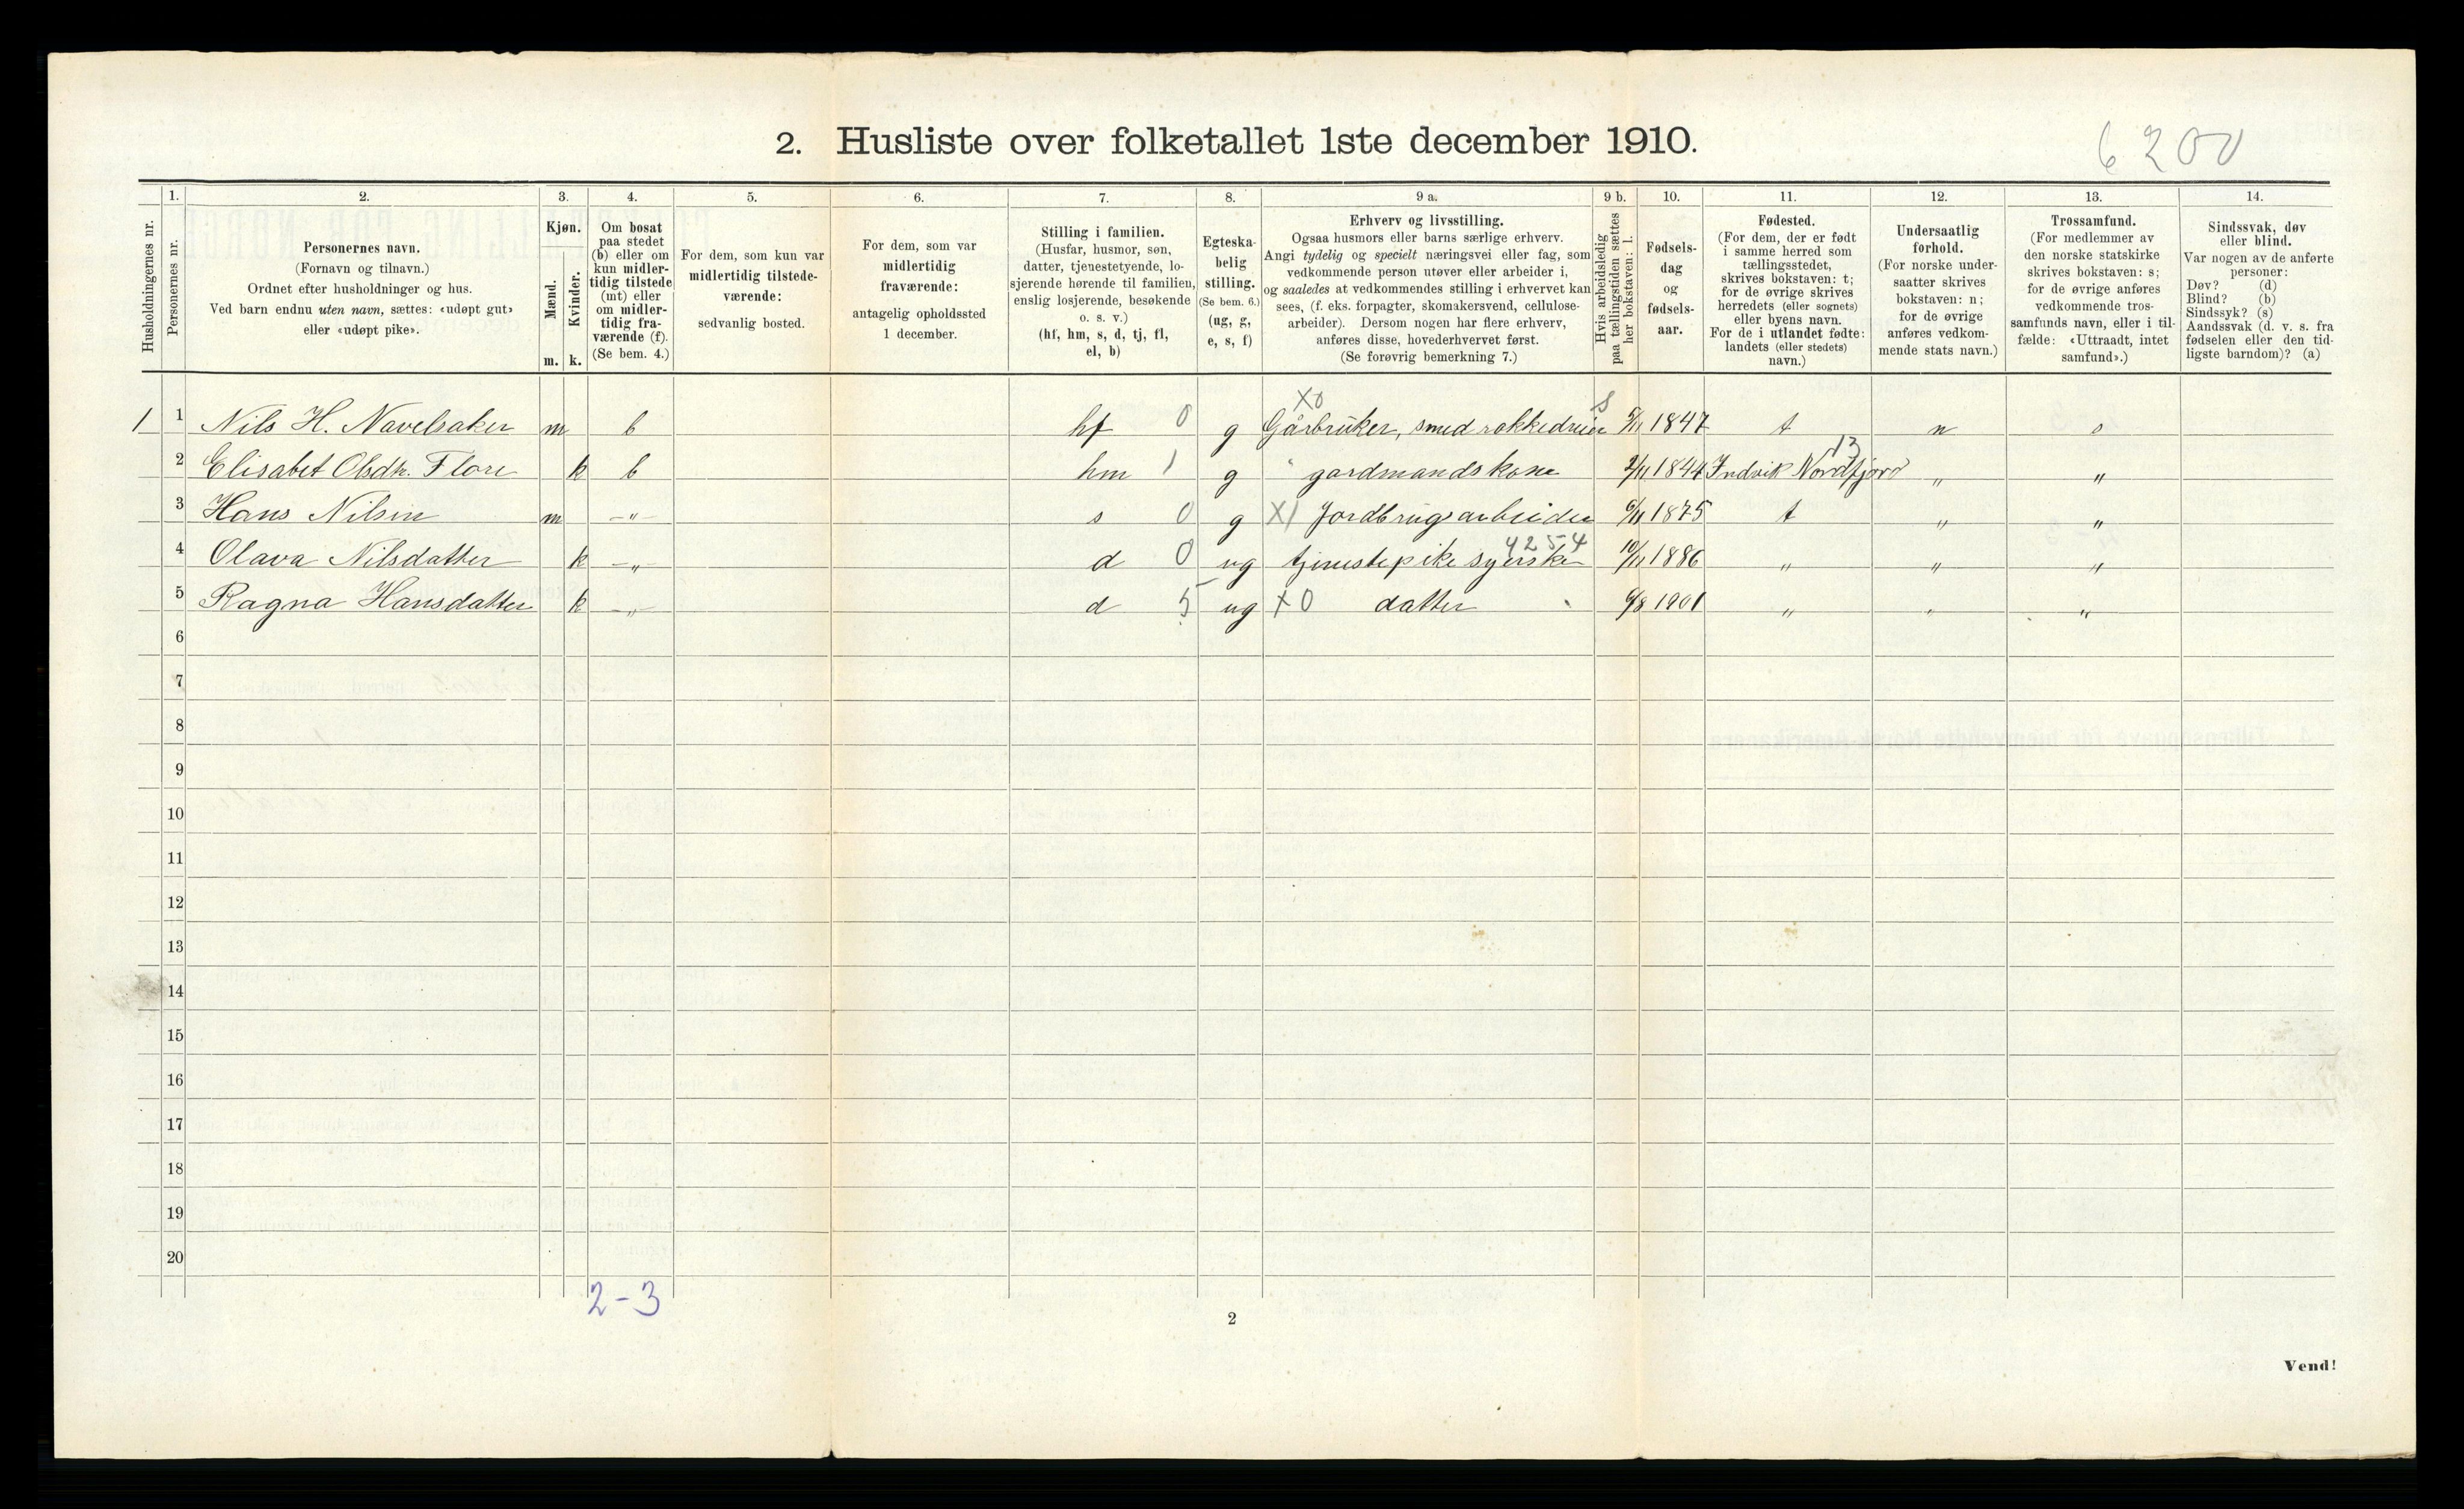 2. Husliste over folketallet 1ste december 1910.
6200
1. 2. 3. 4. 5. 6. 7. 8. 9 a. 9 b. 10. 11. 12. 13. 14.
Husholdningernes nr.
Personernes nr.
Personernes navn.
(Fornavn og tilnavn.)
Ordnet efter husholdninger og hus.
Ved barn endnu uten navn, sættes: «udøpt gut»
eller «udøpt pike».
Kjøn.
Mænd.
Kvinder.
m. k.
Om bosat
paa stedet
(b) eller om
kun midler-
tidig tilstede
(mt) eller
om midler-
tidig fra-
værende (f).
(Se bem. 4.)
For dem, som kun var
midlertidig tilstede-
værende:
sedvanlig bosted.
For dem, som var
midlertidig
fraværende:
antagelig opholdssted
1 december.
Stilling i familien.
(Husfar, husmor, søn,
datter, tjenestetyende, lo-
sjerende hørende til familien,
enslig losjerende, besøkende
o. s. v.)
(hf, hm, s, d, tj, fl,
el, b)
Egteska-
belig
stilling.
(Se bem. 6.)
(ug, g,
e, s, f)
Erhverv og livsstilling.
Ogsaa husmors eller barns særlige erhverv.
Angi tydelig og specielt næringsvei eller fag, som
vedkommende person utøver eller arbeider i,
og saaledes at vedkommendes stilling i erhvervet kan
sees, (f. eks. forpagter, skomakersvend, cellulose-
arbeider). Dersom nogen har flere erhverv,
anføres disse, hovederhvervet først.
(Se forøvrig bemerkning 7.)
Hvis arbeidsledig
paa tællingstiden sættes
her bokstaven: l.
Fødsels-
dag
og
fødsels-
aar.
Fødested.
(For dem, der er født
i samme herred som
tællingsstedet,
skrives bokstaven: t;
for de øvrige skrives
herredets (eller sognets)
eller byens navn.
For de i utlandet fødte:
landets (eller stedets)
navn.)
Undersaatlig
forhold.
(For norske under-
saatter skrives
bokstaven: n;
for de øvrige
anføres vedkom-
mende stats navn.)
Trossamfund.
(For medlemmer av
den norske statskirke
skrives bokstaven: s;
for de øvrige anføres
vedkommende tros-
samfunds navn, eller i til-
fælde: «Uttraadt, intet
samfund».)
Sindssvak, døv
eller blind.
Var nogen av de anførte
personer:
Døv? (d)
Blind? (b)
Sindssyk? (s)
Aandssvak (d. v. s. fra
fødselen eller den tid-
ligste barndom)? (a)
X0 s
1 1 Nils H. Navelsaker m b hf 0 g Gårbruker, smed rokkedreier 5/11 1847 t n s
13
2 Elisabet Olsdtr. Flore k b hm 1 g gardmandskone 2/11 1844 Indvik Nordfjord " "
3 Hans Nilsin m -"- s 0 g X1 Jordbrugsarbeider 6/11 1875 t " "
4254
4 Olava Nilsdatter k -"- d 0 ug tjenestepike syerske 10/11 1886 " " "
5 Ragna Hansdatter k -"- d 5 ug X0 datter 6/8 1901 " " "
6
7
8
9
10
11
12
13
14
15
16
17
18
19
20
2-3
2
Vend!